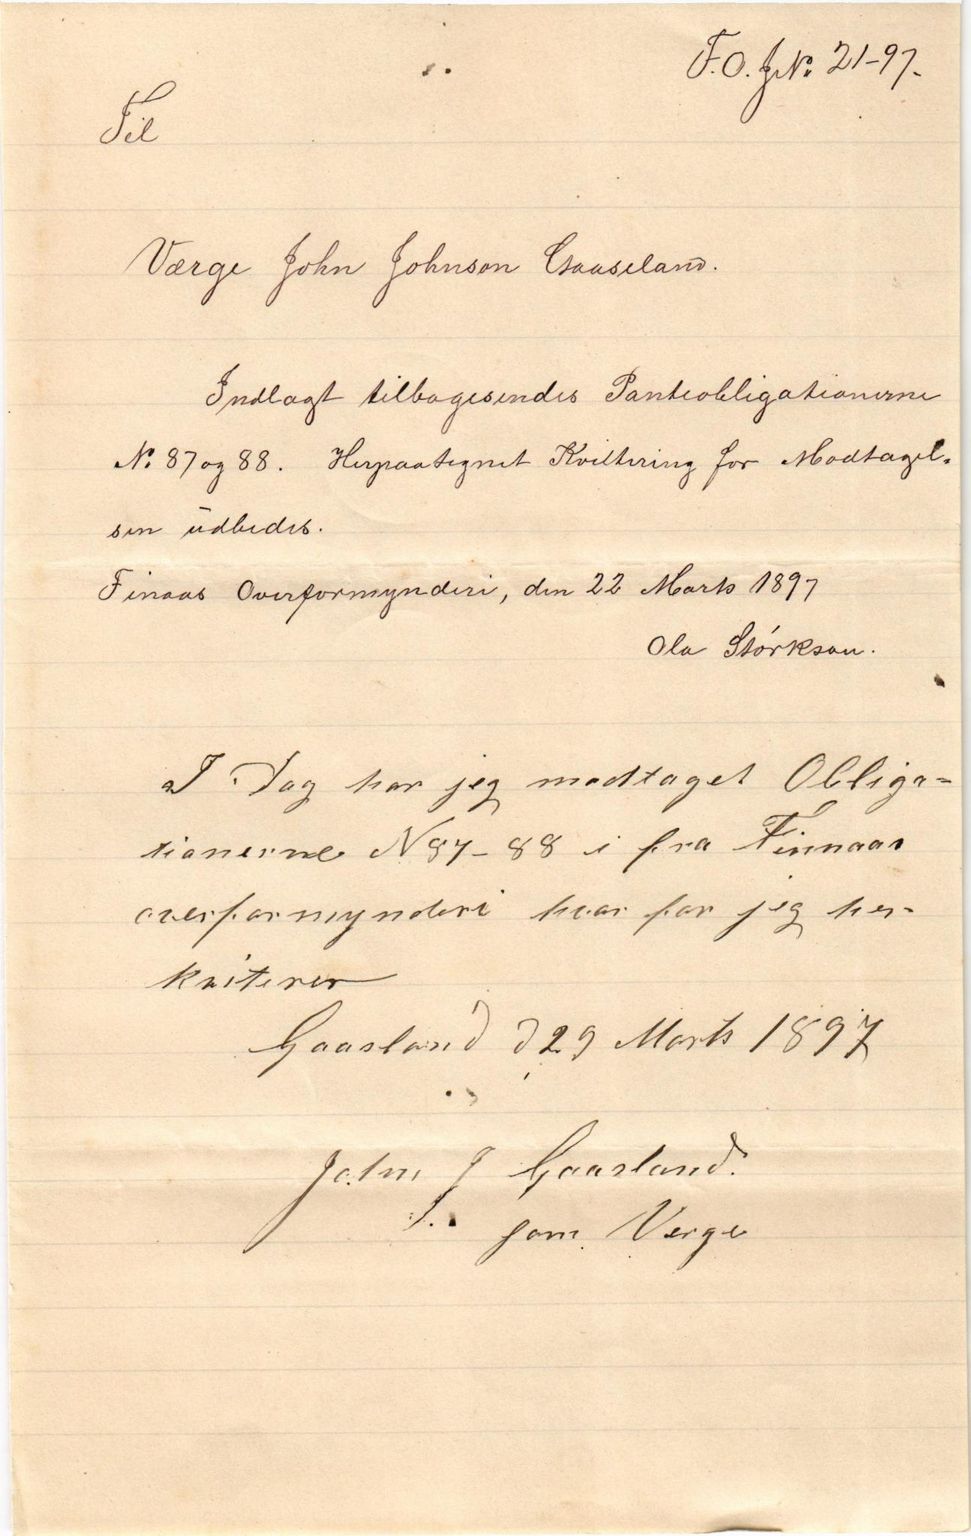 F.O.J.No. 21-97.
Til
Værge John Johnson Gaaseland.
Indlagt tilbagesendes Panteobligationerne
No. 87 og 88. Herpaategnet Kvittering for Modtagel-
sen udbedes.
Finaas Overformynderi, den 22 Marts 1897
Ola Størkson.
I Dag har jeg modtaget Obliga=
tionerne N 87-88 i fra Finnaas
overformynderi hvor for jeg her-
kviterer
Gaasland d 29 Marts 1897
John J Gaasland.
som Verge